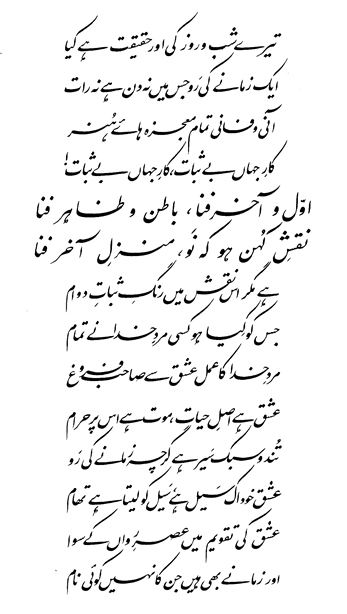 تیرے شب و روز کی اور حقیقت ہے کیا
ایک زمانے کی رَو جس میں نہ دن ہے نہ رات
آنی و فانی تمام معجزہ ہائے ہُنر
کارِ جہاں بے ثبات، کارِ جہاں بے ثبات!
اوّل و آخر فنا، باطن و ظاہر فنا
نقشِ کُہن ہو کہ نَو، منزلِ آخر فنا
ہے مگر اس نقش میں رنگِ ثباتِ دوام
جس کو کیا ہو کسی مردِ خدا نے تمام
مردِ خدا کا عمل عشق سے صاحب فروغ
عشق ہے اصلِ حیات، موت ہے اس پر حرام
تُند و سبک سَیر ہے گرچہ زمانے کی رَو
عشق خود اک سَیل ہے، سَیل کو لیتا ہے تھام
عشق کی تقویم میں عصرِ رواں کے سوا
اور زمانے بھی ہیں جن کا نہیں کوئی نام